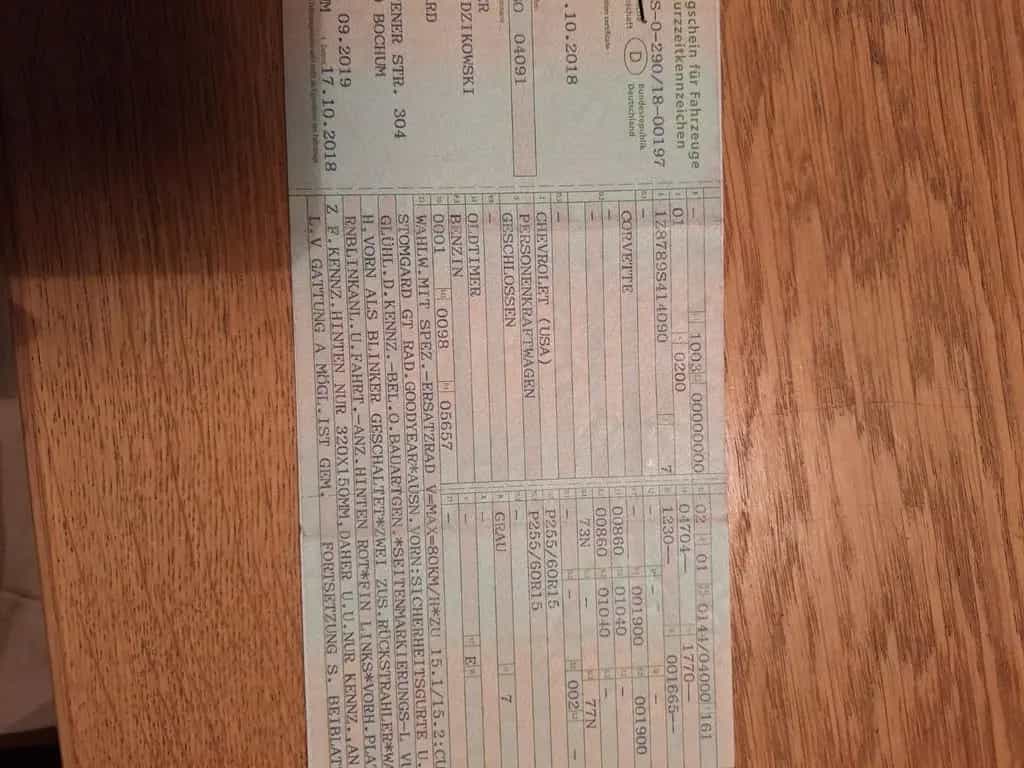 gschein für Fahrzeuge
urzzeitkennzeichen
S-0-290/18-00197
D
Bundesrepublik
Deutschland
.10.2018
04091
DZIKOWSKI
ENER STR. 304
BOCHUM
09.2019
17.10.2018
-
01
1003 00000000
0200
1Z8789S414090 7
-
CORVETTE
-
-
-
CHEVROLET (USA)
PERSONENKRAFTWAGEN
GESCHLOSSEN
-
OLDTIMER
BENZIN
0001 0098 05657
02 01 0144/04000 161
04704— 1770—
1230— 001665—
- - -
- 001900 001900
00860 01040 -
00860 01040 -
73N - 77N
- - 002 -
P255/60R15
P255/60R15
-
GRAU 7
-
- E
-
WAHLW.MIT SPEZ.-ERSATZRAD V=MAX=80KM/H*ZU 15.1/15.2:CU
STOMGARD GT RAD.GOODYEAR*AUSN.VORN:SICHERHEITSGURTE U.
GLÜHL.D.KENNZ.-BEL.O.BAUARTGEN.*SEITENMARKIERUNGS-L
H.VORN ALS BLINKER GESCHALTET*ZWEI ZUS.RÜCKSTRAHLER*W
RNBLINKANL.U.FAHRT.-ANZ.HINTEN ROT*EIN LINKS*VORH.PLA
Z F.KENNZ.HINTEN NUR 320X150MM,DAHER U.U.NUR KENNZ.,AN
L.V GATTUNG A MÖGL.IST GEM. FORTSETZUNG S. BEIBLAT